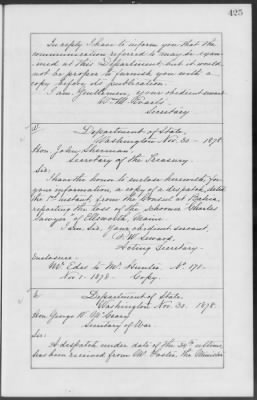 425
In reply I have to inform you that the
communication referred to may be exam-
ined at this Department, but it would
not be proper to furnish you with a
copy before its publication.
I am, Gentlemen, your obedient servant
Wm. M. Evarts
Secretary
Department of State,
Washington Nov. 30 - 1878
Hon. John Sherman,
Secretary of the Treasury.
Sir:
I have the honor to enclose herewith, for
your information, a copy of a despatch, dated
the 1st instant, from the Consul at Bahia,
reporting the loss of the Schooner "Charles
Sawyer" of Ellsworth, Maine.
I am, Sir, Your obedient servant,
F. W. Seward,
Acting Secretary.
Enclosure:
Mr. Edes to Mr. Hunter. No. 171 -
Nov. 1. 1878. - Copy.
Department of State
Washington Nov. 30. 1878.
Hon. George W. McCrary
Secretary of War.
Sir:
A despatch under date of the ultimo,
has been received from Mr. Foster, the Minister